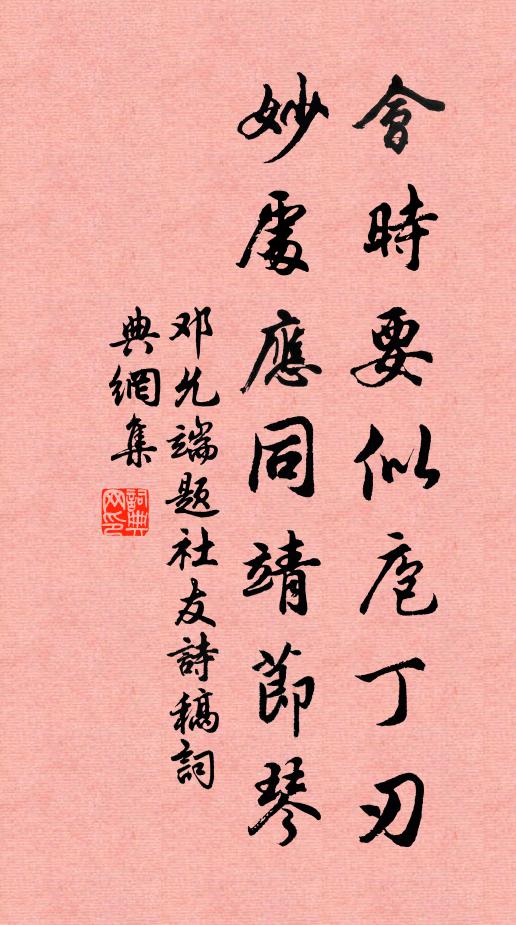 會時要似庖丁刃
妙處應同靖節琴
邓允端题社友詩稿詞
典網集
詞典网印